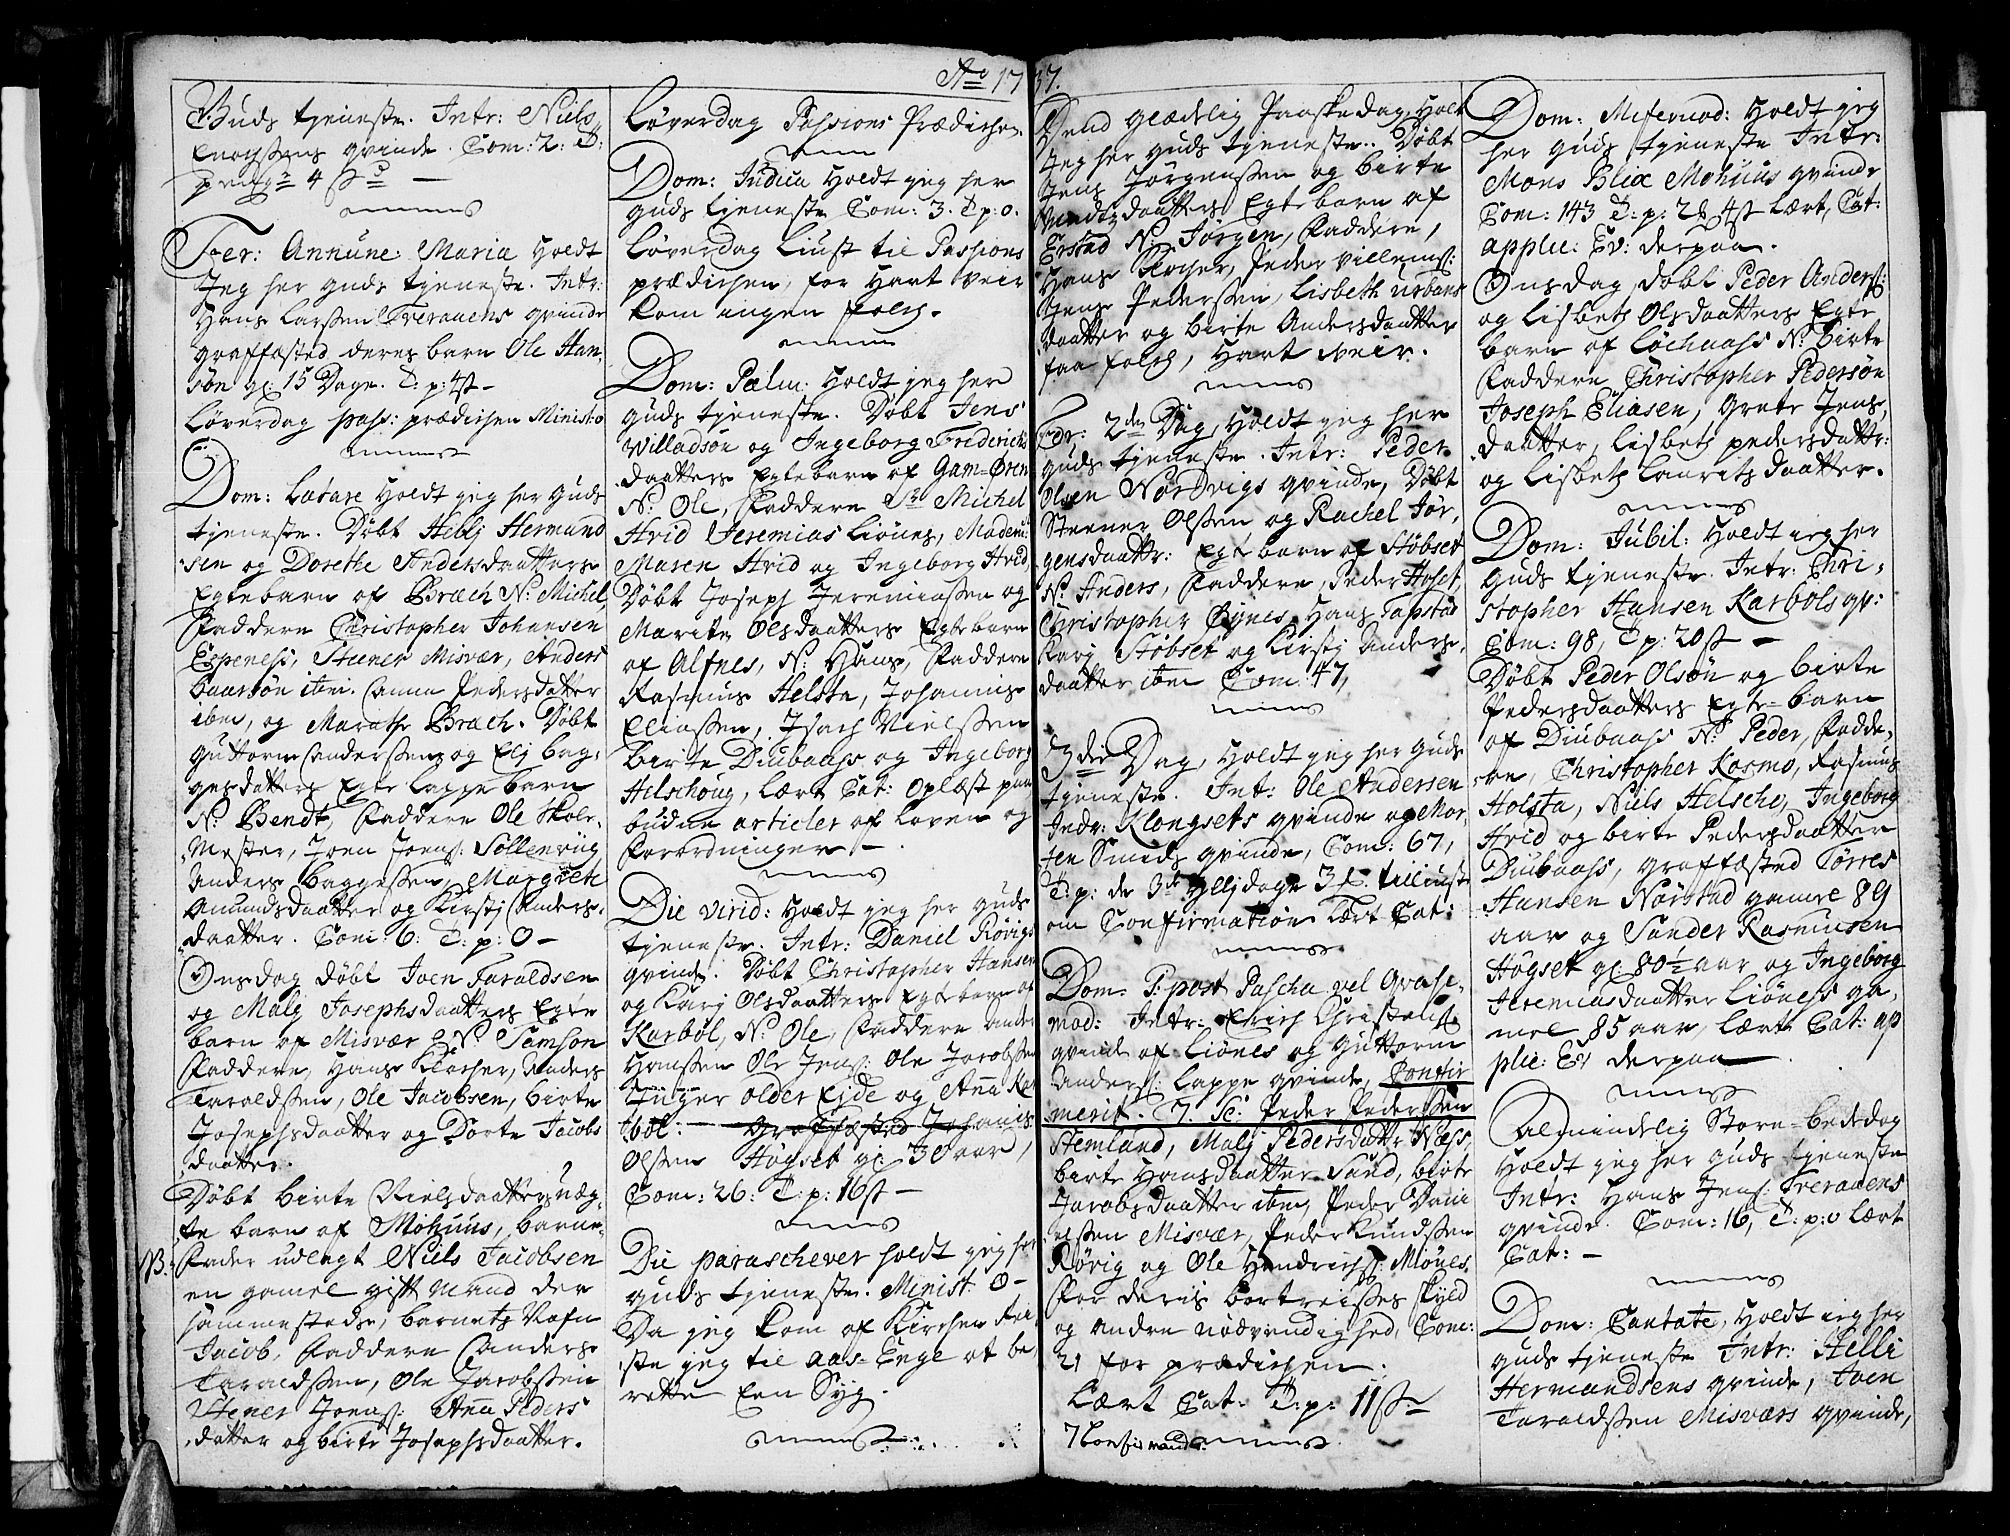 Ao 1737.
Guds tieneste. Intr: Niels
Enochssens qvinde. Com: 2. T:
penge 4 ß
Fer: Annunc: Maria Holdt
Jeg her guds tieneste. Intr:
Hans Larssen Treraaens qvinde
graffæsted deres barn Ole Han,
søn gl: 15 Dage. T: p: 4ß
Løverdag pass: prædichen Minist: 0
Dom: Lætare Holdt jeg her guds
tieneste. Døbt Hellj Hermund
sen og Dorethe Andersdaatters
Egtebarn af Bræch N: Michel
Faddere Christopher Johansen
Espenesi, Steener Misvær, Anders
baarsøn ibm. Pedersdatter
ibm, og Marathe Bræch. Døbt
Guttorm Anderssen og Elj bag,
gesdatters Egte lappe barn
N: Bendt, Faddere Ole Skole,
Mester, Joen Joens: Sollenviig
Anders baggessen, Margrete
Amundsdaatter og Kirstj Anders,
daatter. Com: 6: T: p: 0
Onsdag døbt Joen Taraldsen
og Malj Josephsdaatters Egte
barn af Misvær N: Samson
Faddere, Hans Klocher, Anders
Taraldssen, Ole Jacobsen, birte
Josephsdaatter og Dorte Jacobs
daatter.
Døbt birte Nielsdaatters uæg,
te barn af Mohuus, barne,
NB. Fader udlagt Niels Jacobsen
en gamel gift Mand der
sammesteds, barnets Nafn
Jacob, Faddere Anders
Taraldssen, Ole Jacobssen
Stener Joens: Anna Peders
datter og birte Josephsdaatter.
Løverdag Passions Prædichen
Dom: Judica Holdt jeg her
guds tieneste Com: 3. T: p: 0.
Løverdag liust til Passions
prædichen, for Hart Veir
kom ingen folch.
Dom: Palm: Holdt jeg her
guds tieneste. Døbt Jens
Willadsøn og Ingeborg Friderichs
daatters Egtebarn af Gam-Øren
N: Ole, Faddere Sr Michel
Hvid Jeremias Liønes, Madem:
Maren Hvid og Ingeborg Hvid,
Døbt Joseph Jeremiassen og
Marite Olsdaatters Egtebarn
af Alfnes, N: Hans, Faddere
Rasmus Helsta, Johannis
Eliassen, Isach Nielssen
birte Diubaass og Ingeborg
Helschoug, lært Cat: Oplæst paa
budne articler af loven og
Forordninger.
Die virid: Holdt jeg her guds
tieneste. Intr: Daniel Røvigs
qvinde. Døbt Christopher Hansen
og Karj Olsdaatters Egtebarn af
Karbøl, N: Ole, Faddere
Hanssen Ole Jens: Ole Jacobssen
Inger older Ejde og Anna Kar
bøl: Graffæsted Johanis
Olssen Høgset gl: 30 aar,
Com: 26: T: p: 16ß
Die parascheves holdt jeg her
guds tieneste. Minist: 0
Da jeg kom af Kirchen rei
ste jeg til aas-Enge at be
rette Een Syg.
Dend Glædelig Paaskedag Holt
Jeg her guds tieneste. Døbt
Jens Jørgenssen og birte
daatters Egtebarn af
Erstad N: Jørgen, Faddere,
Hans Klocher, Peder Villems:
Jens Pederssen, Lisbeth urbans
daatter og birte Andersdaatter
faa folch, Hart veir.
Fer: 2den Dag, Holdt jeg her
guds tieneste. Intr: Peder
Olsen Nordvigs qvinde, Døbt
Steener Olssen og Rachel Jør,
gensdaattr: Egte barn af Støbset
N: Anders, Faddere, Peder Hoset,
Christopher Øynes, Hans Tapstad
Karj Støbset og Kirstj Anders,
daatter ibm Com: 47,
3die Dag, Holdt jeg her guds
tieneste. Int: Ole Andersen
Indr: Klongsets qvinde og Mor,
ten Smeds qvinde, Com: 67,
T: p: de 3de Helljdage 3 til liust
om Confirmation lært Cat:
Dom: 1: post Pascha vel Qvasi,
mod: Intr: Erich Christens:
qvinde af Liønes og Guttorm
Anders: lappe qvinde, Confir
merit. 7. Sc: Peder Pederssen
Hemland, Malj Pedersdattr Næss,
birte Hansdaatter Sand, birte
Jacobsdaatter ibm, Peder Dani
elssen Misvær, Peder Knudssen
Røvig og Ole Hendrichs: Miønes,
for deris bortreisses skyld
og andre nødvendighed, Com:
21 for prædichen.
Lært Cat. T: p: 11ß
7 Confirmandr:
Dom: Misericod: Holdt jeg
her guds tieneste Intr:
Mons Blix Mohuus qvinde
Com: 143 T: p: 2 4ß lært, Cat:
applic: Ev: derpaa.
Onsdag, døbt Peder Anders:
og Lisbets Olsdaatters Egte
barn af Løchaass N: birte
Faddere Christopher Pedersøn
Joseph Eliasen, Grete Jens,
daatter, Lisbets pedersdattr:
og Lisbets Lauritsdaatter.
Dom: Jubil: Holdt jeg her
guds tieneste. Intr: Chri,
stopher Hansen Karbøls qv:
Com: 98, T: p: 20ß
Døbt Peder Olsøn og birte
Pedersdaatters Egte-barn
af Diubaass N: Peder, Fadde,
re, Christopher Kosmo, Rasmus
Holsta, Niels Helsche, Ingeborg
Hvid og birte Pedersdaatter
Diubaass, graffæsted Tørres
Hansen Nørstad gamle 89
aar og Sander Rasmusen
Høgset gl: 80½ aar og Ingeborg
Jeremiasdaatter Liønes ga,
mel 85 aar, lært Cat: ap
plic: Ev: derpaa
Almindelig Store-bededag
Holdt jeg her guds tieneste
Intr: Hans Jens: Treraaens
qvinde. Com: 16, T: p: 0 lært
Cat:
Dom: Cantate, Holdt jeg her
guds tieneste Intr: Helli
Hermandsens qvinde, Joen
Taraldssen Misværs qvinde,